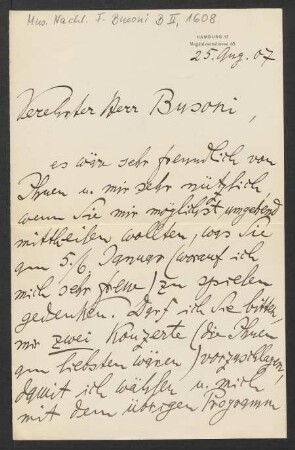 Mus. Nachl. F. Busoni B II, 1608
HAMBURG 37
25. Aug. 07
Verehrter Herr Busoni,
es wäre sehr freundlich von
Ihnen u. mir sehr nützlich,
wenn Sie mir möglichst umgehend
mittheilen wollten, was Sie
am 5/6. Januar (worauf ich
mich sehr freue) zu spielen
gedenken. Darf ich Sie bitten,
mir zwei Konzerte (die Ihnen
am liebsten wären) vorzuschlagen,
damit ich wählen u. mich
mit dem übrigen Programm